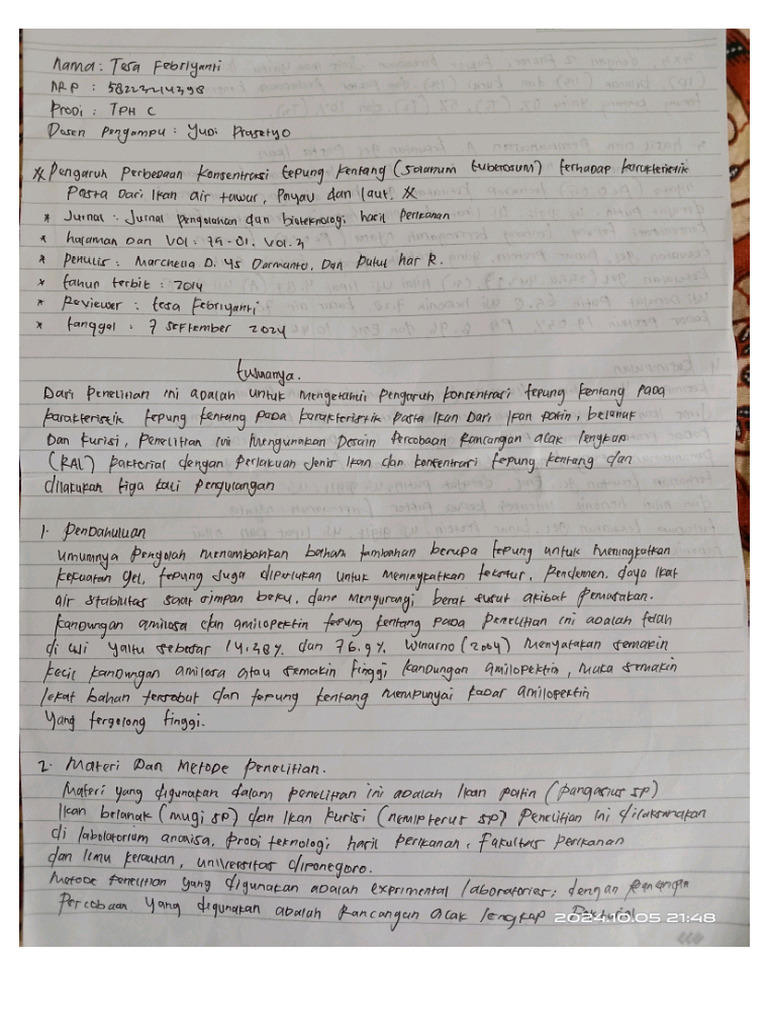 Nama : Tesa Febriyanti
NRP : 58223214398
Prodi : TPH C
Dosen Pengampu : Yudi Prasetyo
** Pengaruh Perbedaan Konsentrasi tepung Kentang (Solanum tuberosum) terhadap karakteristik
Pasta Dari Ikan air tawar, Payau dan laut. **
* Jurnal : Jurnal pengolahan dan bioteknologi hasil Perikanan
* halaman Dan Vol : 79-01. Vol. 3
* Penulis : Marchella D. Ys Darmanto, Dan Putut har R.
* tahun terbit : 2014
* Reviewer : tesa Febriyanti
* tanggal : 7 September 2024
tujuannya.
Dari Penelitian ini adalah untuk mengetahui Pengaruh Konsentrasi tepung kentang pada
karakteristik tepung kentang pada karakteristik Pasta Ikan Dari Ikan patin, belanak
Dan Kurisi, Penelitian ini mengunakan Desain Percobaan Rancangan acak lengkap
(RAL) Faktorial dengan Perlakuan Jenis Ikan dan konsentrasi tepung kentang dan
dilakukan tiga kali pengulangan
1. Pendahuluan
Umumnya Pengolah menambahkan bahan tambahan berupa tepung untuk meningkatkan
kekuatan gel, tepung Juga diperlukan untuk Meningkatkan tekstur, Rendemen, daya Ikat
air stabilitas saat simpan beku, dan mengurangi berat susut akibat Pemasakan.
kandungan amilosa dan amilopektin tepung kentang pada Penelitian ini adalah telah
di uji yaitu sebesar 14.38% dan 76.9% Winarno (2004) menyatakan semakin
kecil kandungan amilosa atau semakin tinggi kandungan amilopektin, maka semakin
lekat bahan tersebut dan tepung kentang mempunyai kadar amilopektin
yang tergolong tinggi.
2. Materi Dan Metode Penelitian.
Materi yang digunakan dalam penelitian ini adalah Ikan patin (pangasius sp)
Ikan belanak (mugi sp) dan Ikan kurisi (nemipterus sp) Penelitian ini dilaksanakan
di labolatorium analisa, prodi teknologi hasil perikanan, fakultas perikanan
dan Ilmu kelautan, universitas diponegoro.
Metode Penelitian yang digunakan adalah exprimental laboratories; dengan Rancangan
Percobaan Yang digunakan adalah Rancangan acak lengkap Faktorial
2024.10.05 21:48